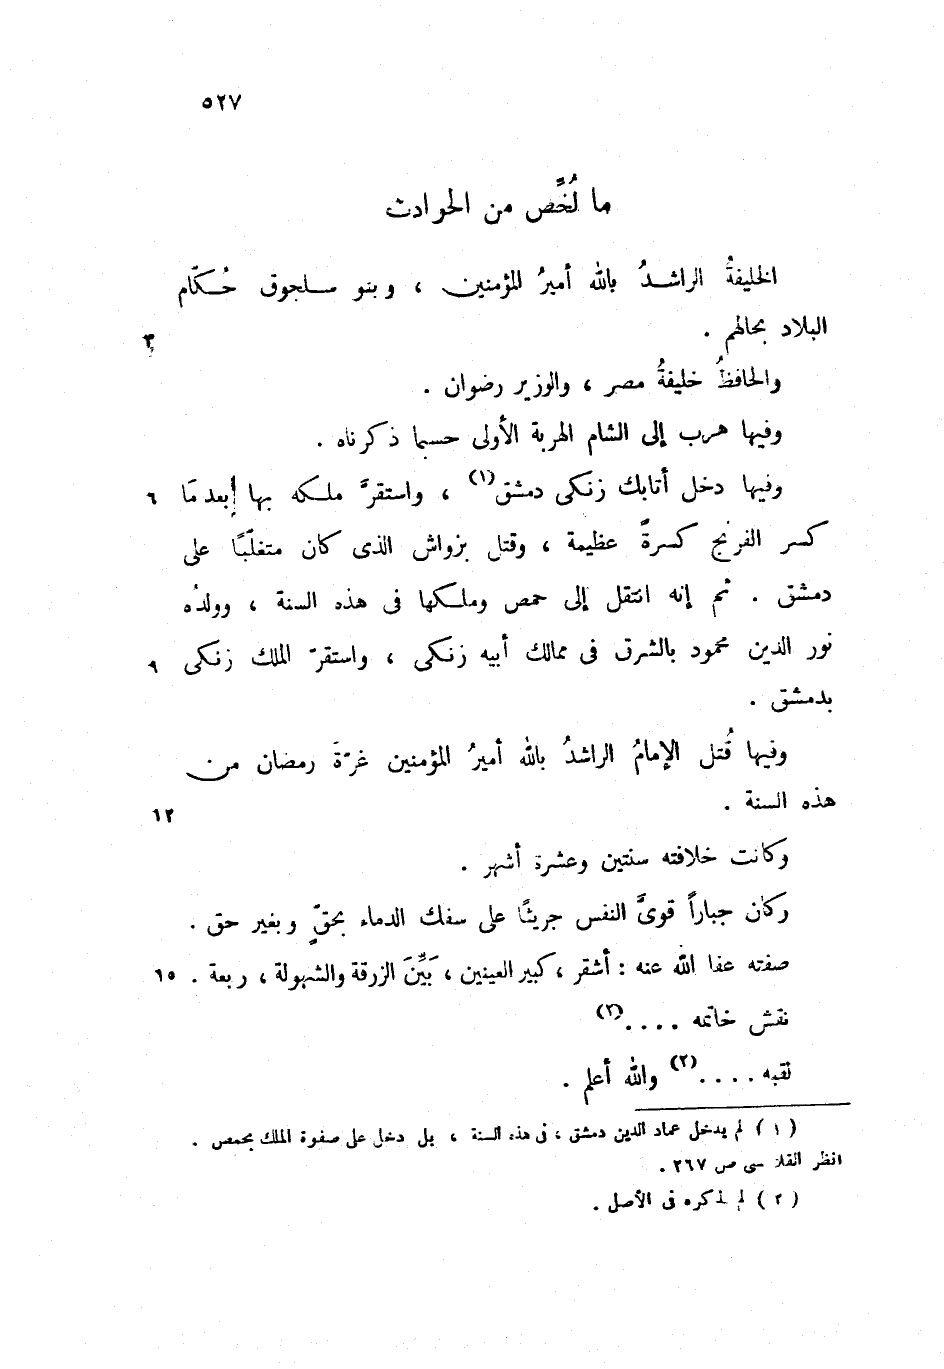 ٥٢٧
ما لُخِّص من الحوادث
الخليفةُ الراشدُ بالله أميرُ المؤمنين ، وبنو سلجوق حُكّام
البلاد بحالهم .
٣
والحافظُ خليفةُ مصر ، والوزير رضوان .
وفيها هرب إلى الشام الهربة الأولى حسبما ذكرناه .
وفيها دخل أتابك زنكى دمشق(١) ، واستقرّ ملكه بها بعد مَا ٦
كسر الفرنج كسرةً عظيمة ، وقتل بزواش الذى كان متغلّبًا على
دمشق . ثم إنه انتقل إلى حمص وملكها فى هذه السنة ، وولدُه
نور الدين محمود بالشرق فى ممالك أبيه زنكى ، واستقرّ الملك زنكى ٩
بدمشق .
وفيها قُتل الإمامُ الراشدُ بالله أميرُ المؤمنين غرّةَ رمضان من
هذه السنة .
١٢
وكانت خلافته سنتين وعشرة أشهر .
وكان جباراً قوىَّ النفس جريئًا على سفك الدماء بحقٍّ وبغير حق .
صفته عفا الله عنه : أشقر ، كبير العينين ، بَيِّنَ الزرقة والشهولة ، ربعة . ١٥
نقش خاتمه ....(٢)
لقبه ....(٢) والله أعلم .
(١) لم يدخل عماد الدين دمشق ، فى هذه السنة ، بل دخل على صفوة الملك بحمص .
انظر القلانسى ص ٢٦٧ .
(٢) لم يذكره فى الأصل .